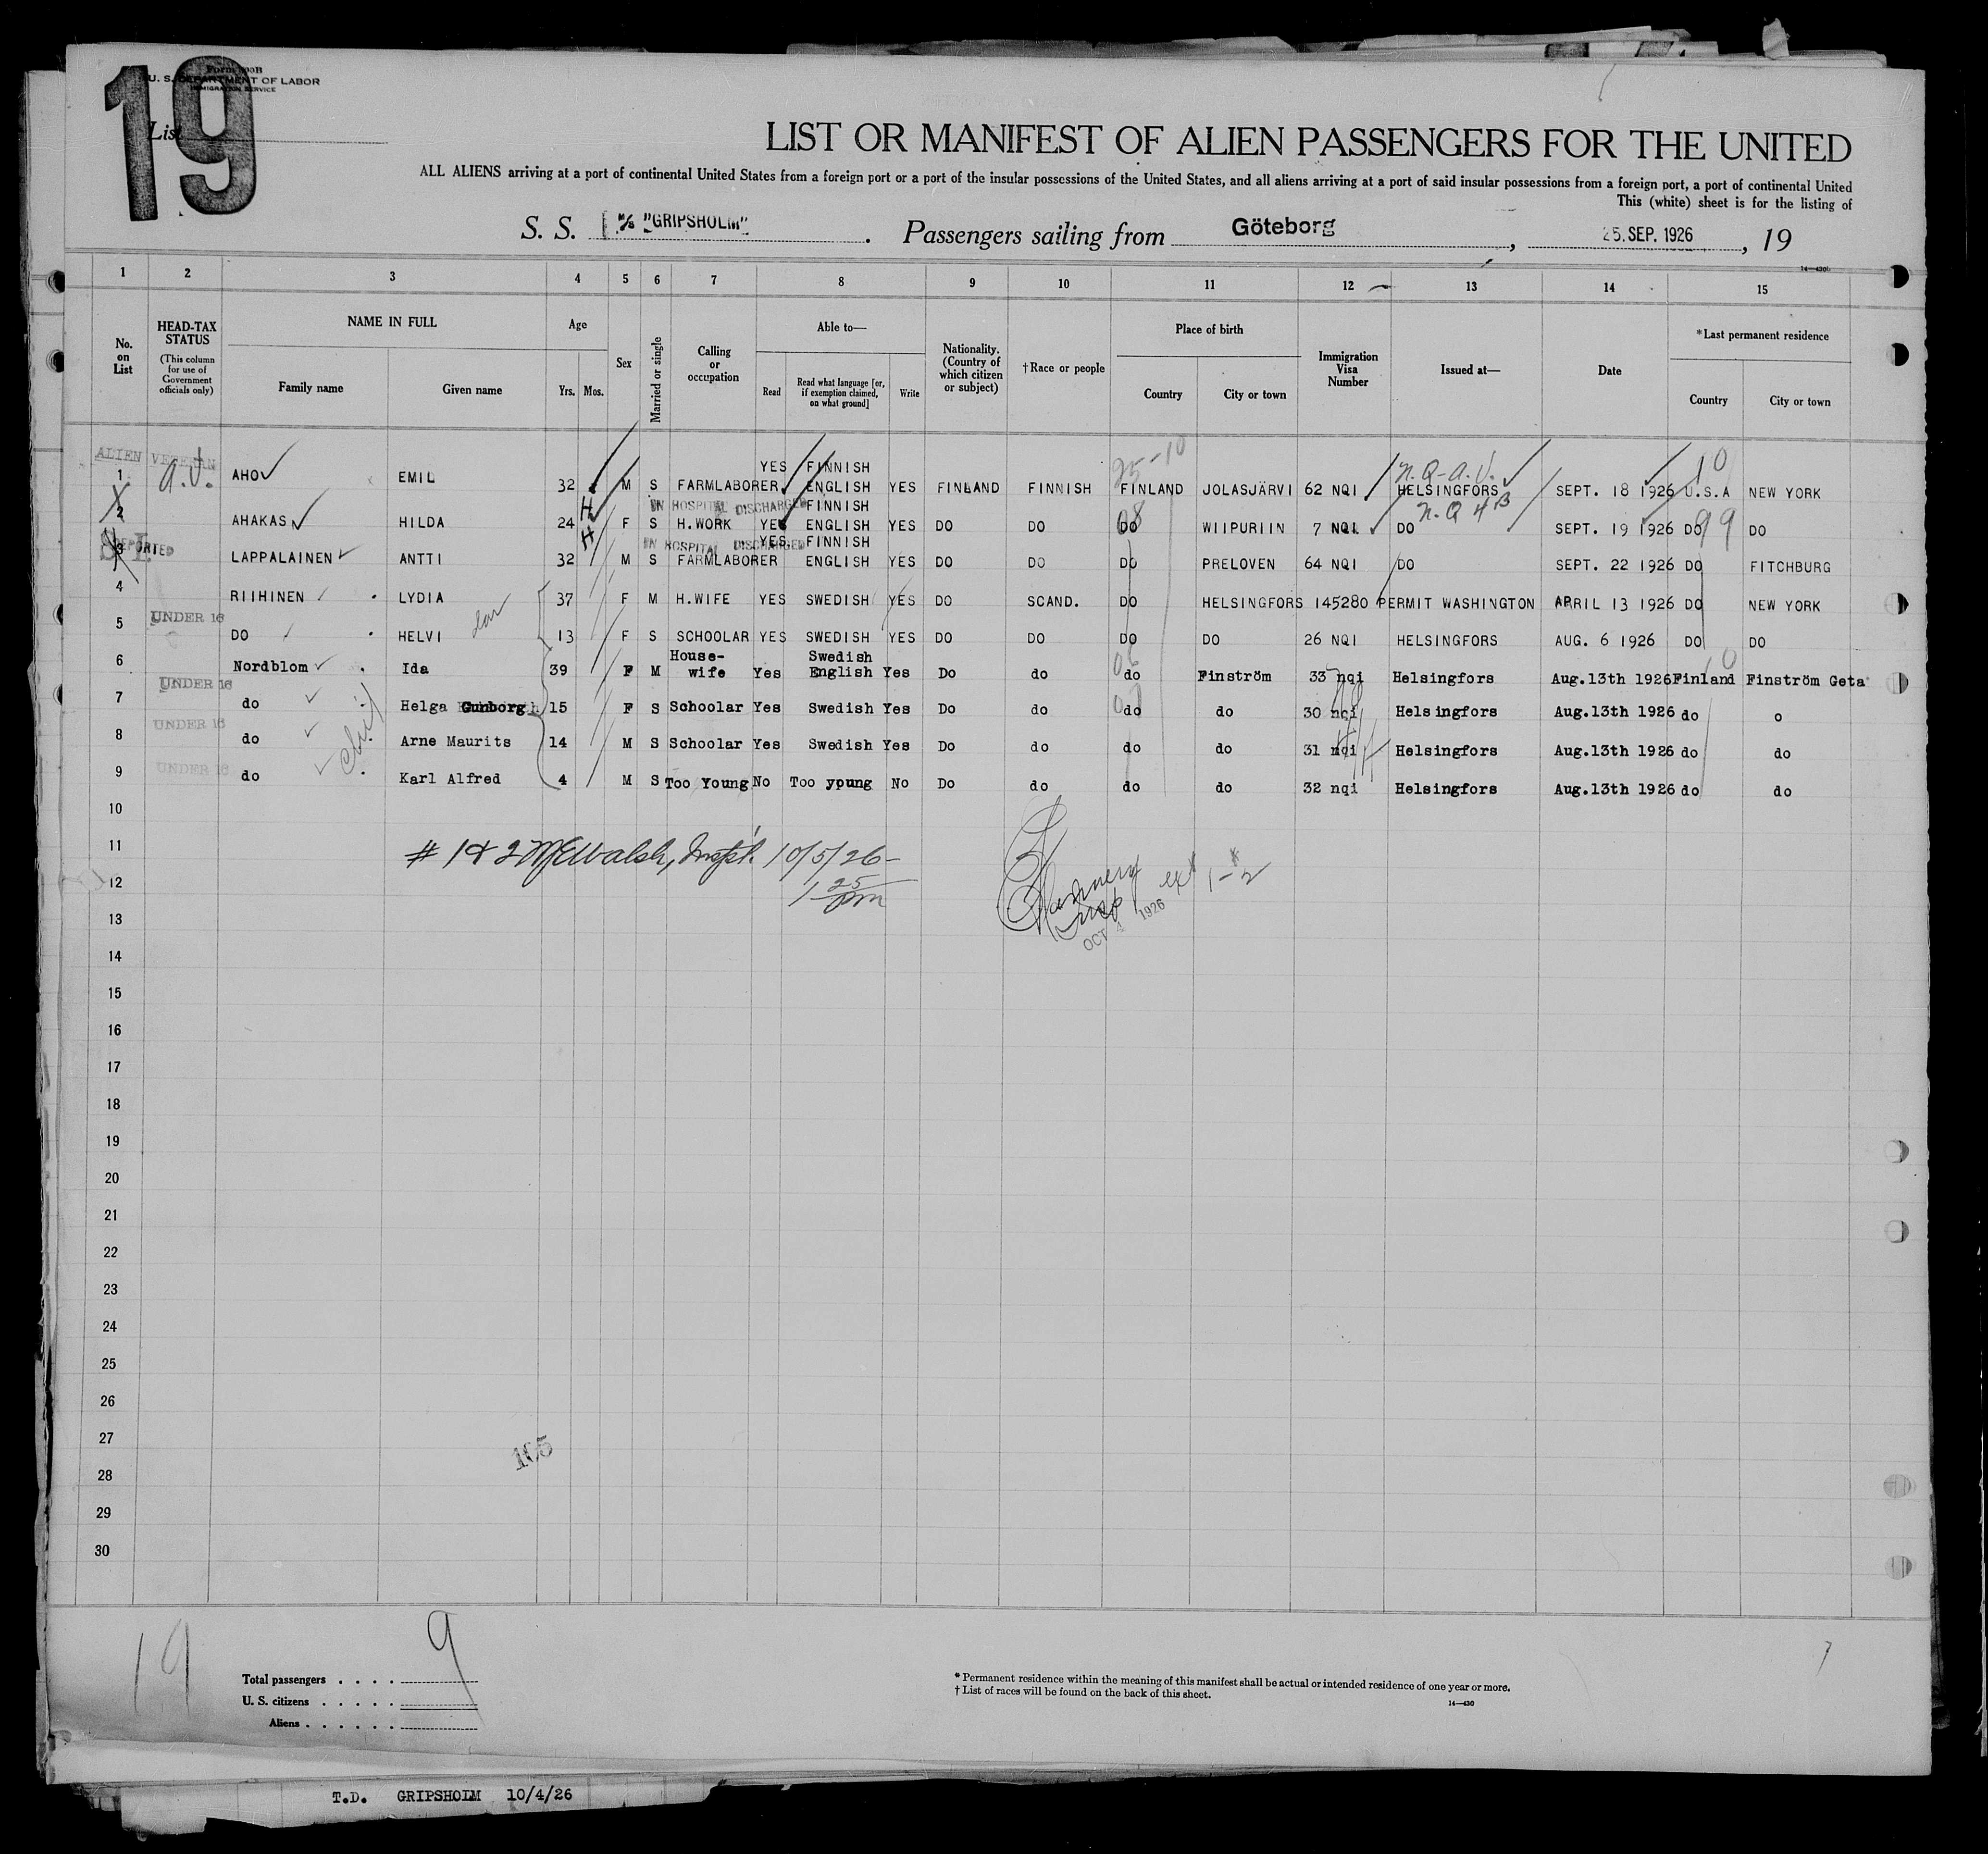 19
U. S. DEPARTMENT OF LABOR
IMMIGRATION SERVICE
List
LIST OR MANIFEST OF ALIEN PASSENGERS FOR THE UNITED
ALL ALIENS arriving at a port of continental United States from a foreign port or a port of the insular possessions of the United States, and all aliens arriving at a port of said insular possessions from a foreign port, a port of continental United
This (white) sheet is for the listing of
S. S. M/S "GRIPSHOLM". Passengers sailing from Göteborg, 25. SEP. 1926, 19
14—430
1 2 3 4 5 6 7 8 9 10 11 12 13 14 15
No. on List
HEAD-TAX STATUS
(This column for use of Government officials only)
NAME IN FULL
Family name Given name
Age
Yrs. Mos.
Sex
Married or single
Calling or occupation
Able to—
Read Read what language [or, if exemption claimed, on what ground] Write
Nationality. (Country of which citizen or subject)
†Race or people
Place of birth
Country City or town
Immigration Visa Number
Issued at—
Date
*Last permanent residence
Country City or town
ALIEN VETERAN
25-10 N.Q-A.V. 10
1 A.V. AHO EMIL 32 M S FARMLABORER YES FINNISH ENGLISH YES FINLAND FINNISH FINLAND JOLASJÄRVI 62 NQI HELSINGFORS SEPT. 18 1926 U.S.A NEW YORK
IN HOSPITAL DISCHARGED
N.Q 4B
2 AHAKAS HILDA 24 H F S H.WORK YES FINNISH ENGLISH YES DO DO DO WIIPURIIN 7 NQI DO SEPT. 19 1926 DO 99 DO
IN HOSPITAL DISCHARGED
DEPORTED
3 LAPPALAINEN ANTTI 32 H M S FARMLABORER YES FINNISH ENGLISH YES DO DO DO PRELOVEN 64 NQI DO SEPT. 22 1926 DO FITCHBURG
4 RIIHINEN LYDIA 37 F M H.WIFE YES SWEDISH YES DO SCAND. DO HELSINGFORS 145280 PERMIT WASHINGTON APRIL 13 1926 DO NEW YORK
5 UNDER 16 DO HELVI dau 13 F S SCHOOLAR YES SWEDISH YES DO DO DO DO 26 NQI HELSINGFORS AUG. 6 1926 DO DO
6 Nordblom Ida 39 F M House-wife Yes Swedish English Yes Do do do Finström 33 nqi Helsingfors Aug.13th 1926 Finland Finström Geta
7 UNDER 16 do Helga Gunborg 15 F S Schoolar Yes Swedish Yes Do do do do 30 nqi Helsingfors Aug.13th 1926 do o
8 UNDER 16 do Arne Maurits 14 M S Schoolar Yes Swedish Yes Do do do do 31 nqi Helsingfors Aug.13th 1926 do do
9 UNDER 16 do Karl Alfred 4 M S Too Young No Too young No Do do do do 32 nqi Helsingfors Aug.13th 1926 do do
10
11
# 1 & 2 Walsh, Insp. 10/5/26-
1 25 pm
12
OCT 4 1926
13
14
15
16
17
18
19
20
21
22
23
24
25
26
27
105
28
29
30
19
9
Total passengers
U. S. citizens
Aliens
* Permanent residence within the meaning of this manifest shall be actual or intended residence of one year or more.
† List of races will be found on the back of this sheet.
14—430
T.D. GRIPSHOLM 10/4/26